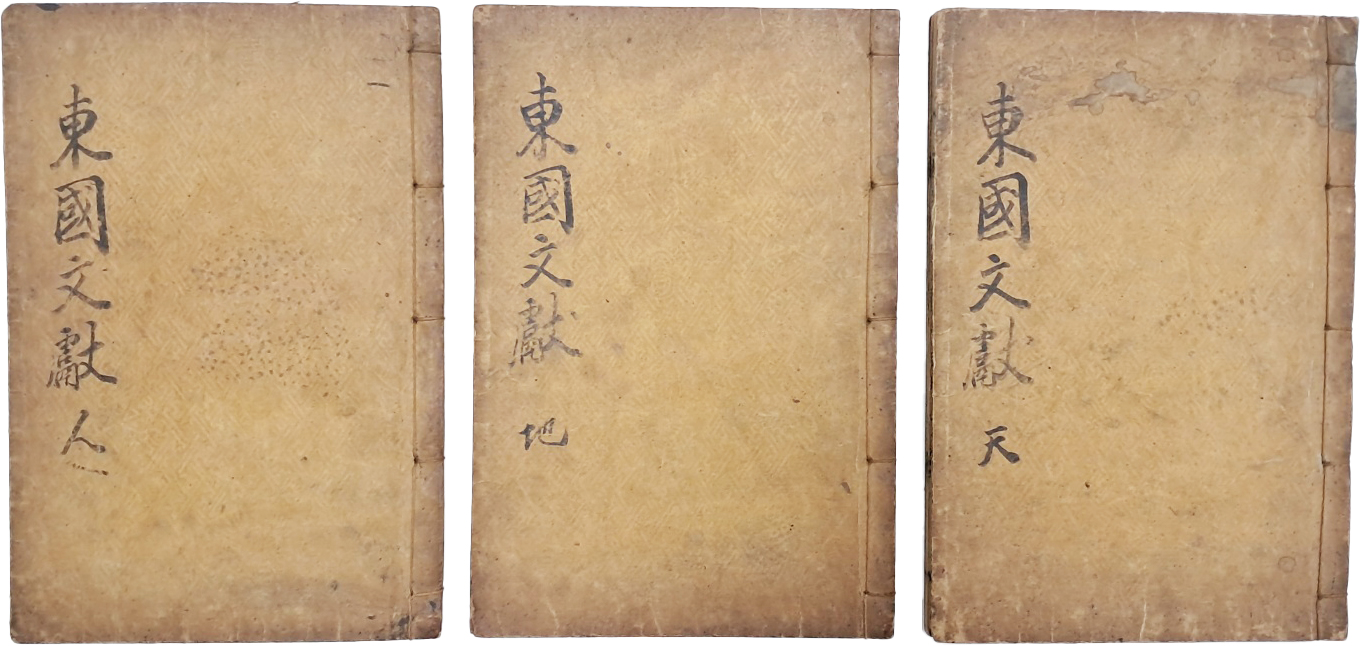 東國文獻 天
東國文獻 地
東國文獻 人